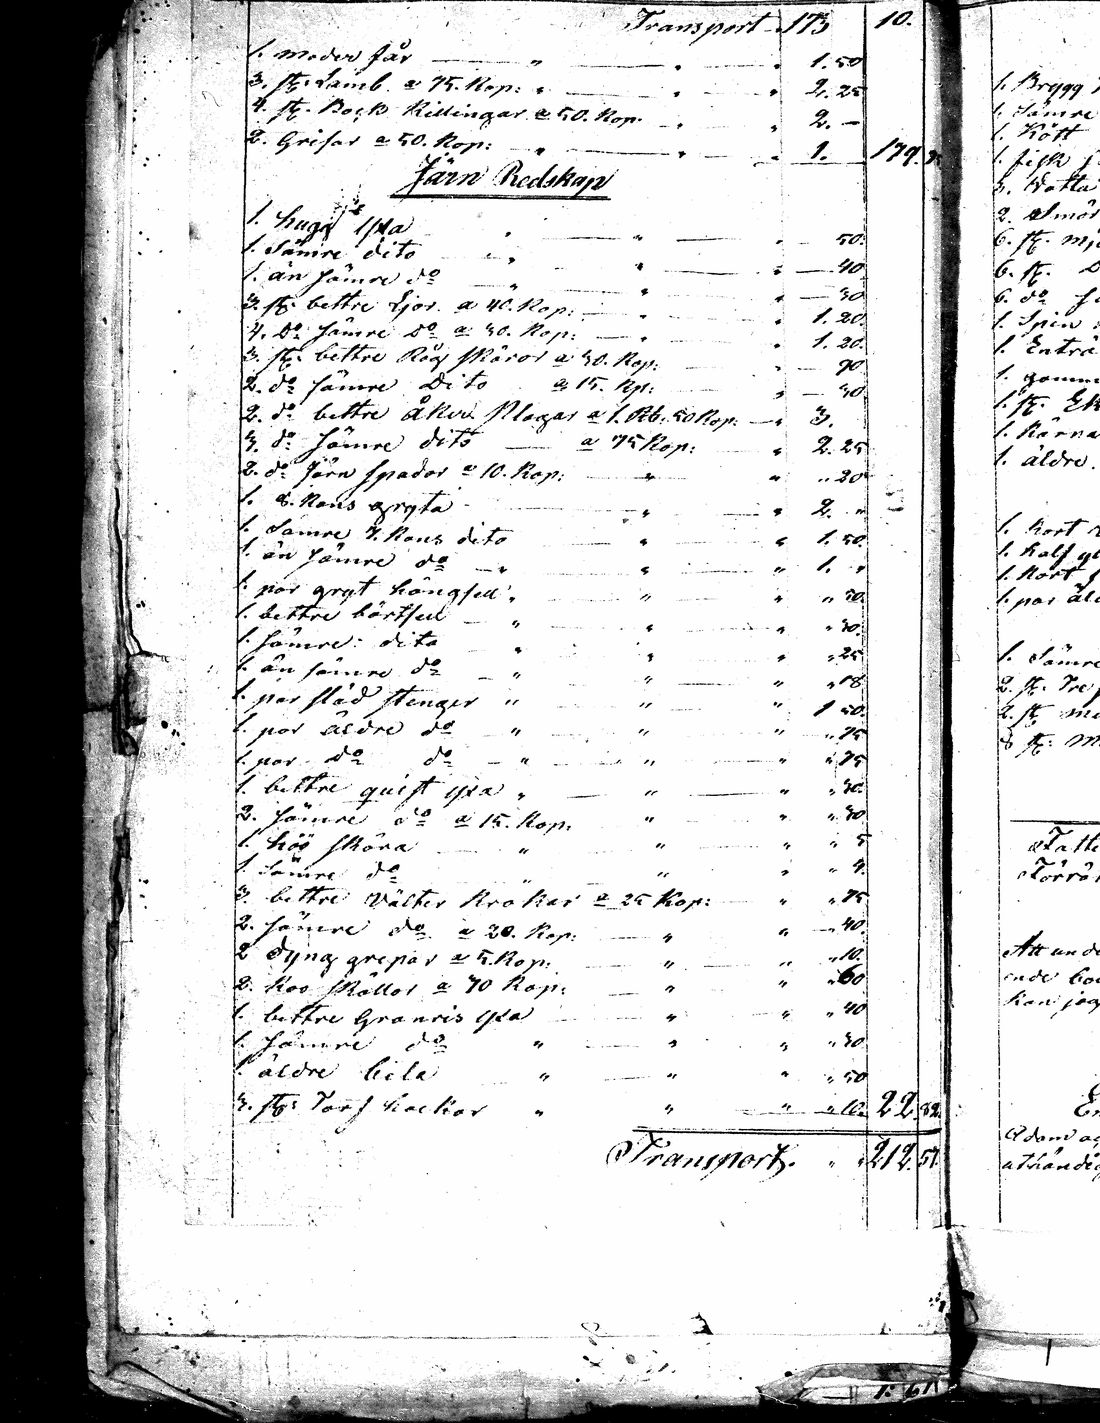 Transport 173 10.
1. moder får " " " 1. 50
3. st: Lamb. a 75. Kop: " " " 2. 25
4. st. Bock Killingar a 50. Kop. " " 2. —
2. Grisar a 50. Kop: " " " 1. 179.
Järn Redskap
1. hugg yxa " " " 50.
1. Sämre dito " " " 40
1. än sämre do " " " 30
3. st. bettre Ljor. a 40. Kop: " " 1. 20.
4. Do sämre Do a 30. Kop: " " 1. 20.
3. st. bettre Råg skäror a 30. Kop: " 90
2. do sämre Dito a 15. Kp: " 30.
2. do bettre åker Plogar a 1. Rb. 50 Kop: 3.
3. do sämre dito a 75 Kop: " 2. 25
2. do Järn spador a 10. Kop: " " " 20
1. 8. Kans gryta " " 2. "
1. Sämre 7. Kans dito " " 1. 50.
1. än sämre do " " " 1. "
1. par gryt hängsel " " " " 30.
1. bettre börtsel " " " " 30.
1. sämre: dito " " " " 25
1. än sämre do " " " " 18
1. par släd stenger " " " 1 50.
1. par äldre do " " " " 75
1. par do do " " " " 75
1. bettre quist yxa " " " " 30.
2. sämre do a 15. Kop. " " " 30
1. höö skära " " " " 5
1. sämre do " " " 4.
3. bettre Välter Krokar a 25 Kop: " " 75
2. sämre do a 20. Kop: " " " 40
2 dyng grepar a 5. Kop: " " " 10.
2. koo skällor a 30 Kop: " " " 60
1. bettre Granris yxa " " " 40
1. sämre do " " " " 30
1. äldre bila " " " " 50
3. st: Torf hackor " " " " 12. 22. 82.
Transport. " " 212. 57.
1. Brygg
1. Sämre
1. Kött
1. fisk
3. Watta
2. Smör
6. st. mj
6. st.
6. do
1. Spin
1. Enträ
1. gamm
1. st. Ek
1. Kärna
1. äldre.
1. kort
1. half
1. kort
1. par äl
1. Sämre
2. st. Tre
2. st
8 st: M
Fatti
Förrå
Att un de
ende bo
kan jag
En
Adam o